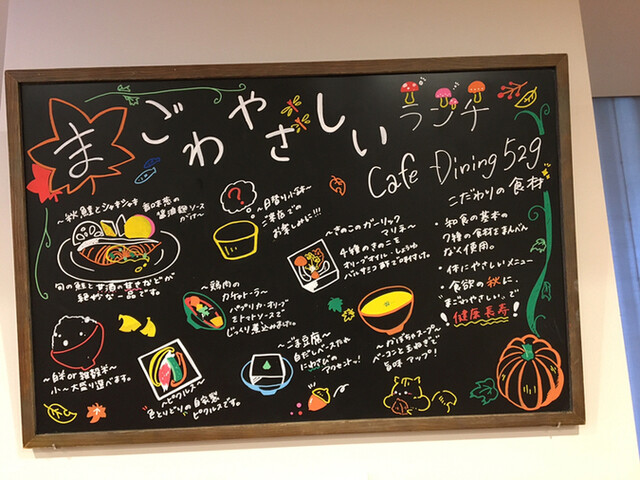 まごわやさしい
ランチ
Cafe Dining 529
こだわりの食材
・和食の基本の
7種の食材をまんべん
なく使用。
・体にやさしいメニュー
・食欲の秋に、
"まごわやさしい"で
健康長寿!
～秋鮭とシャキシャキ
醤油麹ソース
がけ～
旬の鮭と甘酒の甘さなどが
絶妙な一品です。
?
～日替り小鉢～
ご来店での
お楽しみに!!!
～きのこのガーリック
マリネ～
4種のきのこを
オリーブオイル・しょうゆ
バルサミコ酢で味付け。
～鶏肉の
カチャトーラ～
パプリカ・オリーブ
をトマトソースで
じっくり煮込みあげて。
～白米 or 雑穀米～
小～大盛り選べます。
～ピクルス～
色とりどりの自家製
ピクルスです。
～ごま豆腐～
白だしベースだれ
にわさびの
アクセントッ!
～かぼちゃスープ～
ベーコンと玉ねぎで
旨味アップ!